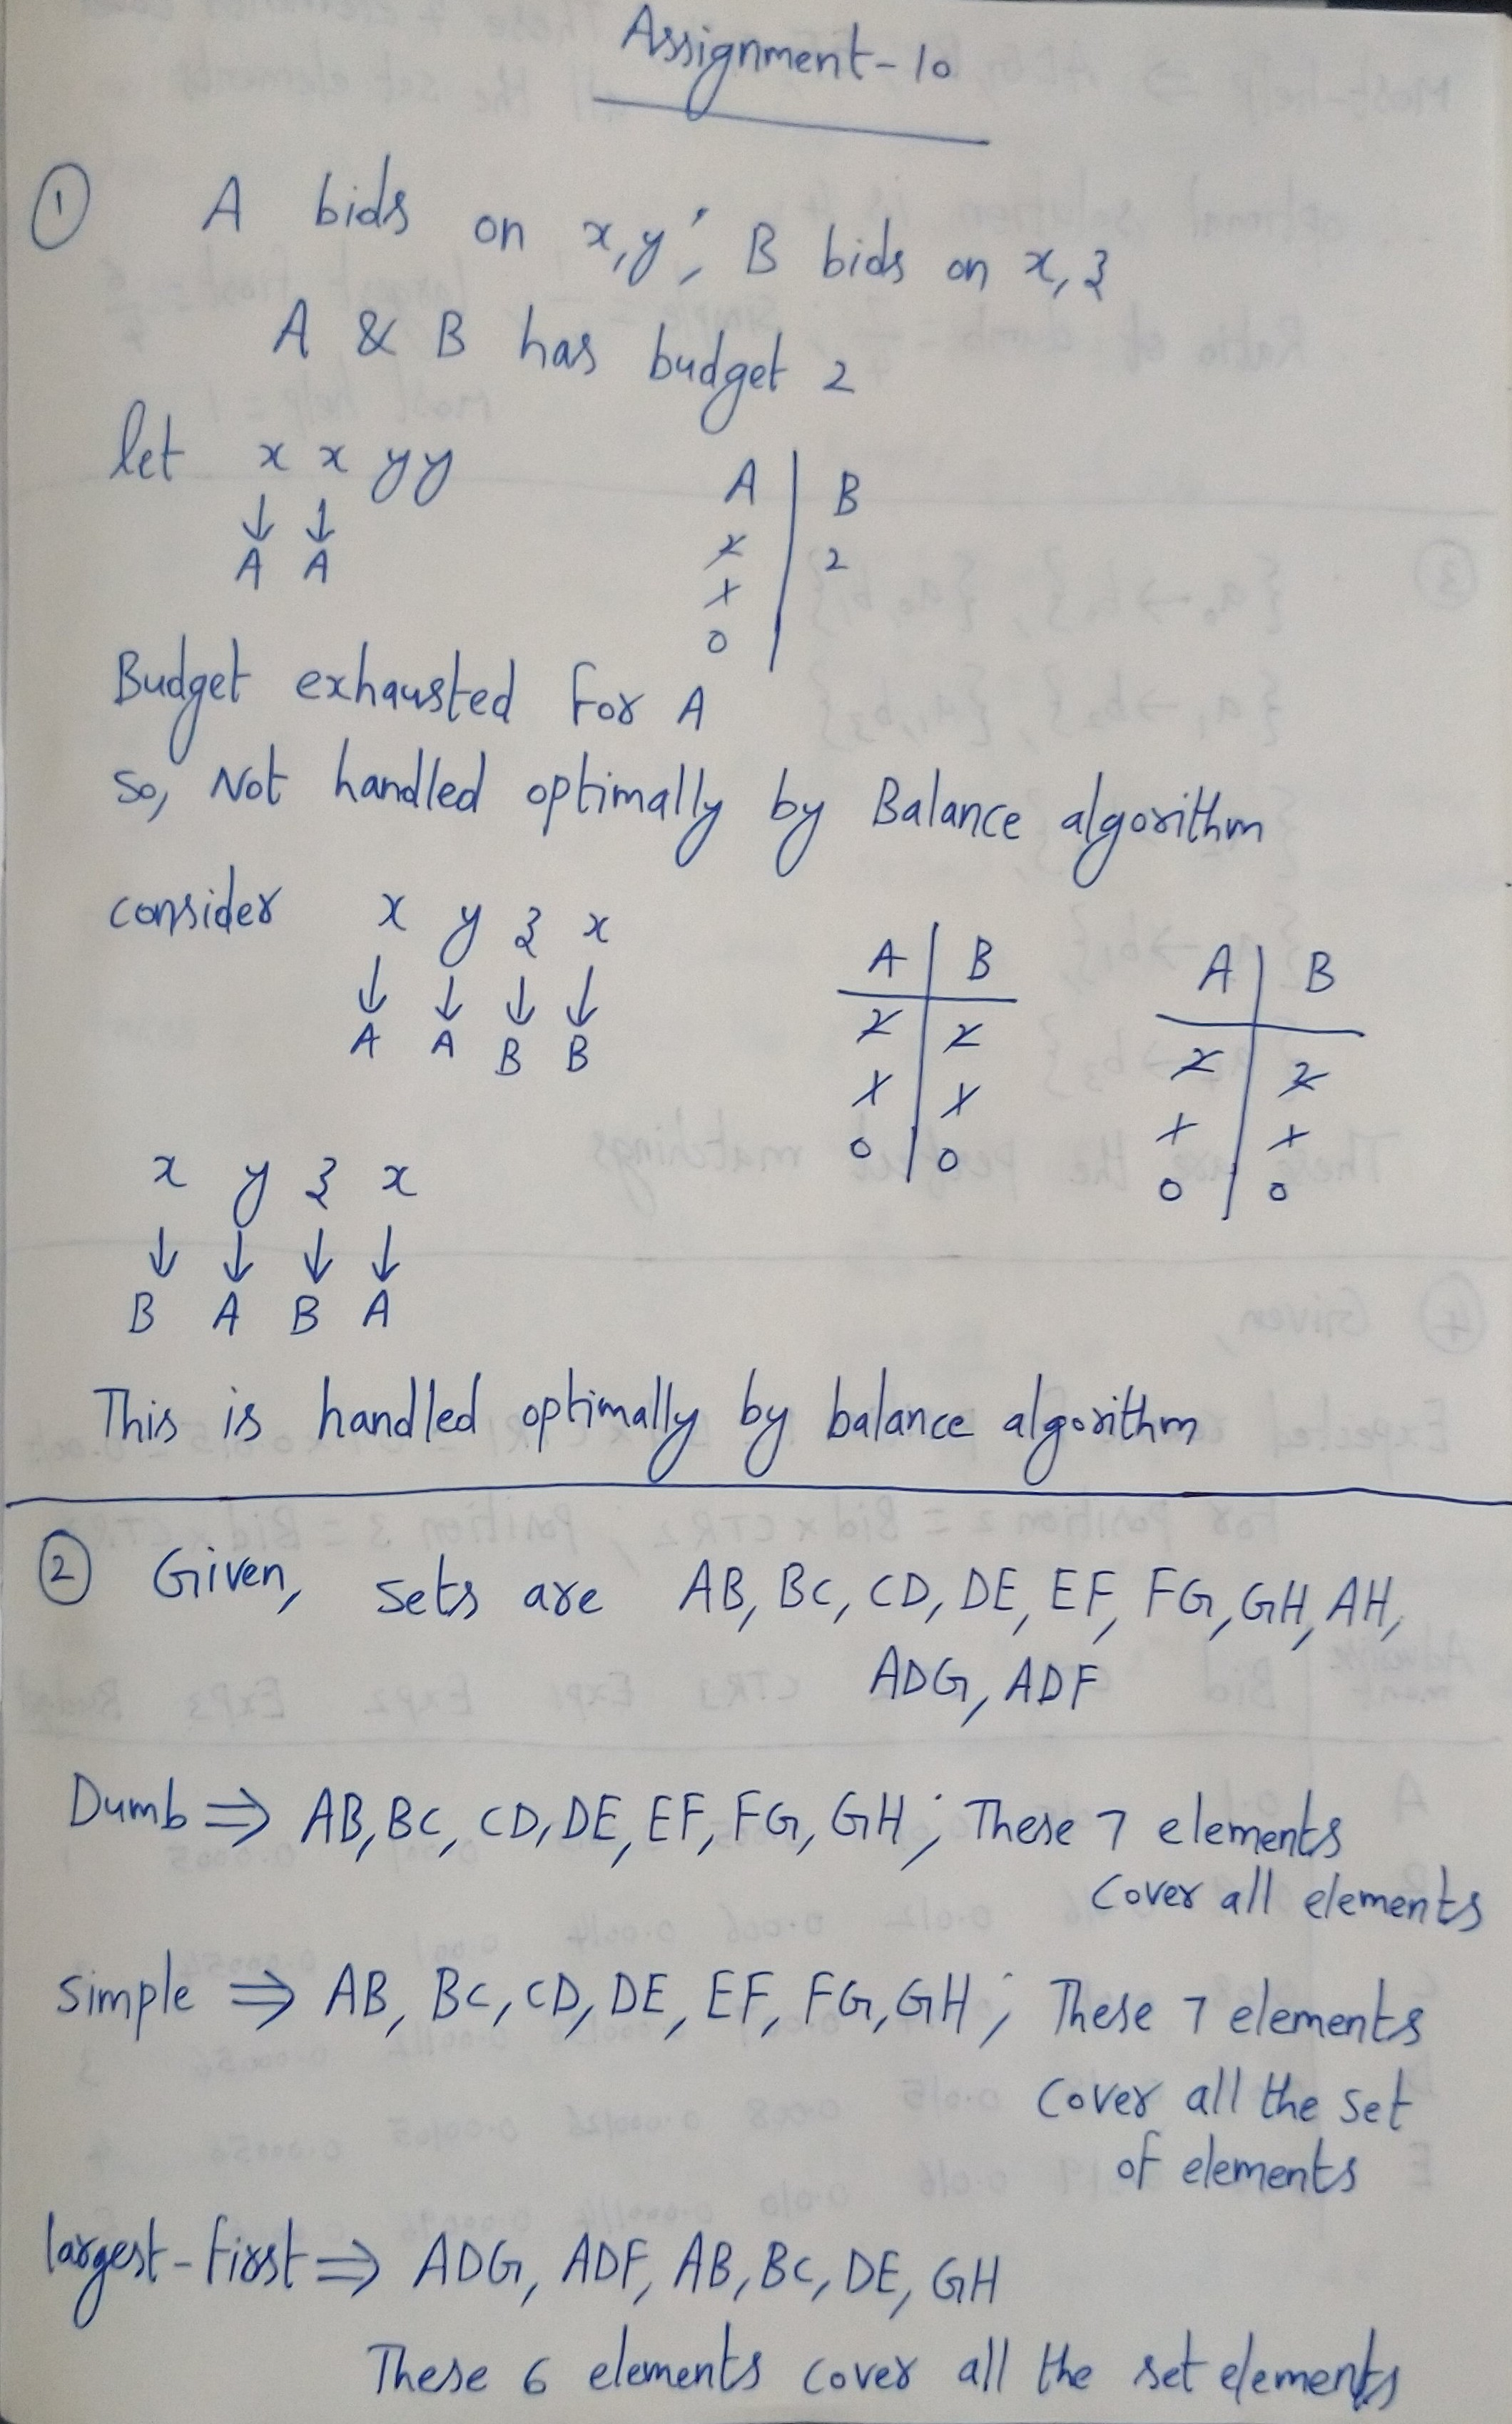 Assignment-10
① A bids on x,y; B bids on x,z
A & B has budget 2
let x x y y
↓ ↓
A A
A | B
2 | 2
1
0
Budget exhausted For A
So, Not handled optimally by Balance algorithm
consider x y z x
↓ ↓ ↓ ↓
A A B B
A | B
2 | 2
1 | 1
0 | 0
A | B
2 | 2
1 | 1
0 | 0
x y z x
↓ ↓ ↓ ↓
B A B A
This is handled optimally by balance algorithm
② Given, sets are AB, BC, CD, DE, EF, FG, GH, AH,
ADG, ADF
Dumb ⇒ AB, BC, CD, DE, EF, FG, GH; These 7 elements
cover all elements
simple ⇒ AB, BC, CD, DE, EF, FG, GH; These 7 elements
cover all the set
of elements
largest-first ⇒ ADG, ADF, AB, BC, DE, GH
These 6 elements cover all the set elements